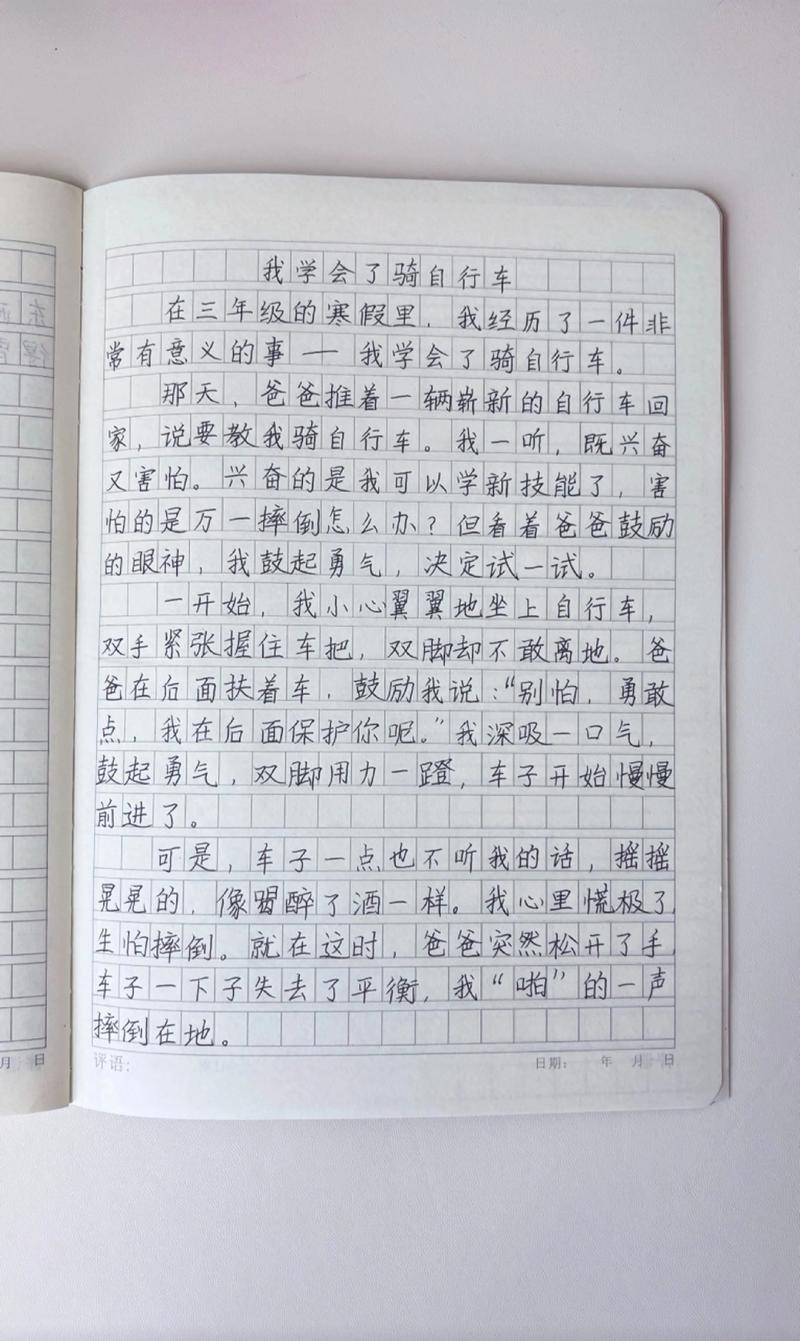 我学会了骑自行车
在三年级的寒假里，我经历了一件非
常有意义的事——我学会了骑自行车。
那天，爸爸推着一辆崭新的自行车回
家，说要教我骑自行车。我一听，既兴奋
又害怕。兴奋的是我可以学新技能了，害
怕的是万一摔倒怎么办？但看着爸爸鼓励
的眼神，我鼓起勇气，决定试一试。
一开始，我小心翼翼地坐上自行车，
双手紧张握住车把，双脚却不敢离地。爸
爸在后面扶着车，鼓励我说：“别怕，勇敢
点，我在后面保护你呢。”我深吸一口气，
鼓起勇气，双脚用力一蹬，车子开始慢慢
前进了。
可是，车子一点也不听我的话，摇摇
晃晃的，像喝醉了酒一样。我心里慌极了，
生怕摔倒。就在这时，爸爸突然松开了手，
车子一下子失去了平衡，我“啪”的一声
摔倒在地。
评语：
日期： 年 月 日
月 日